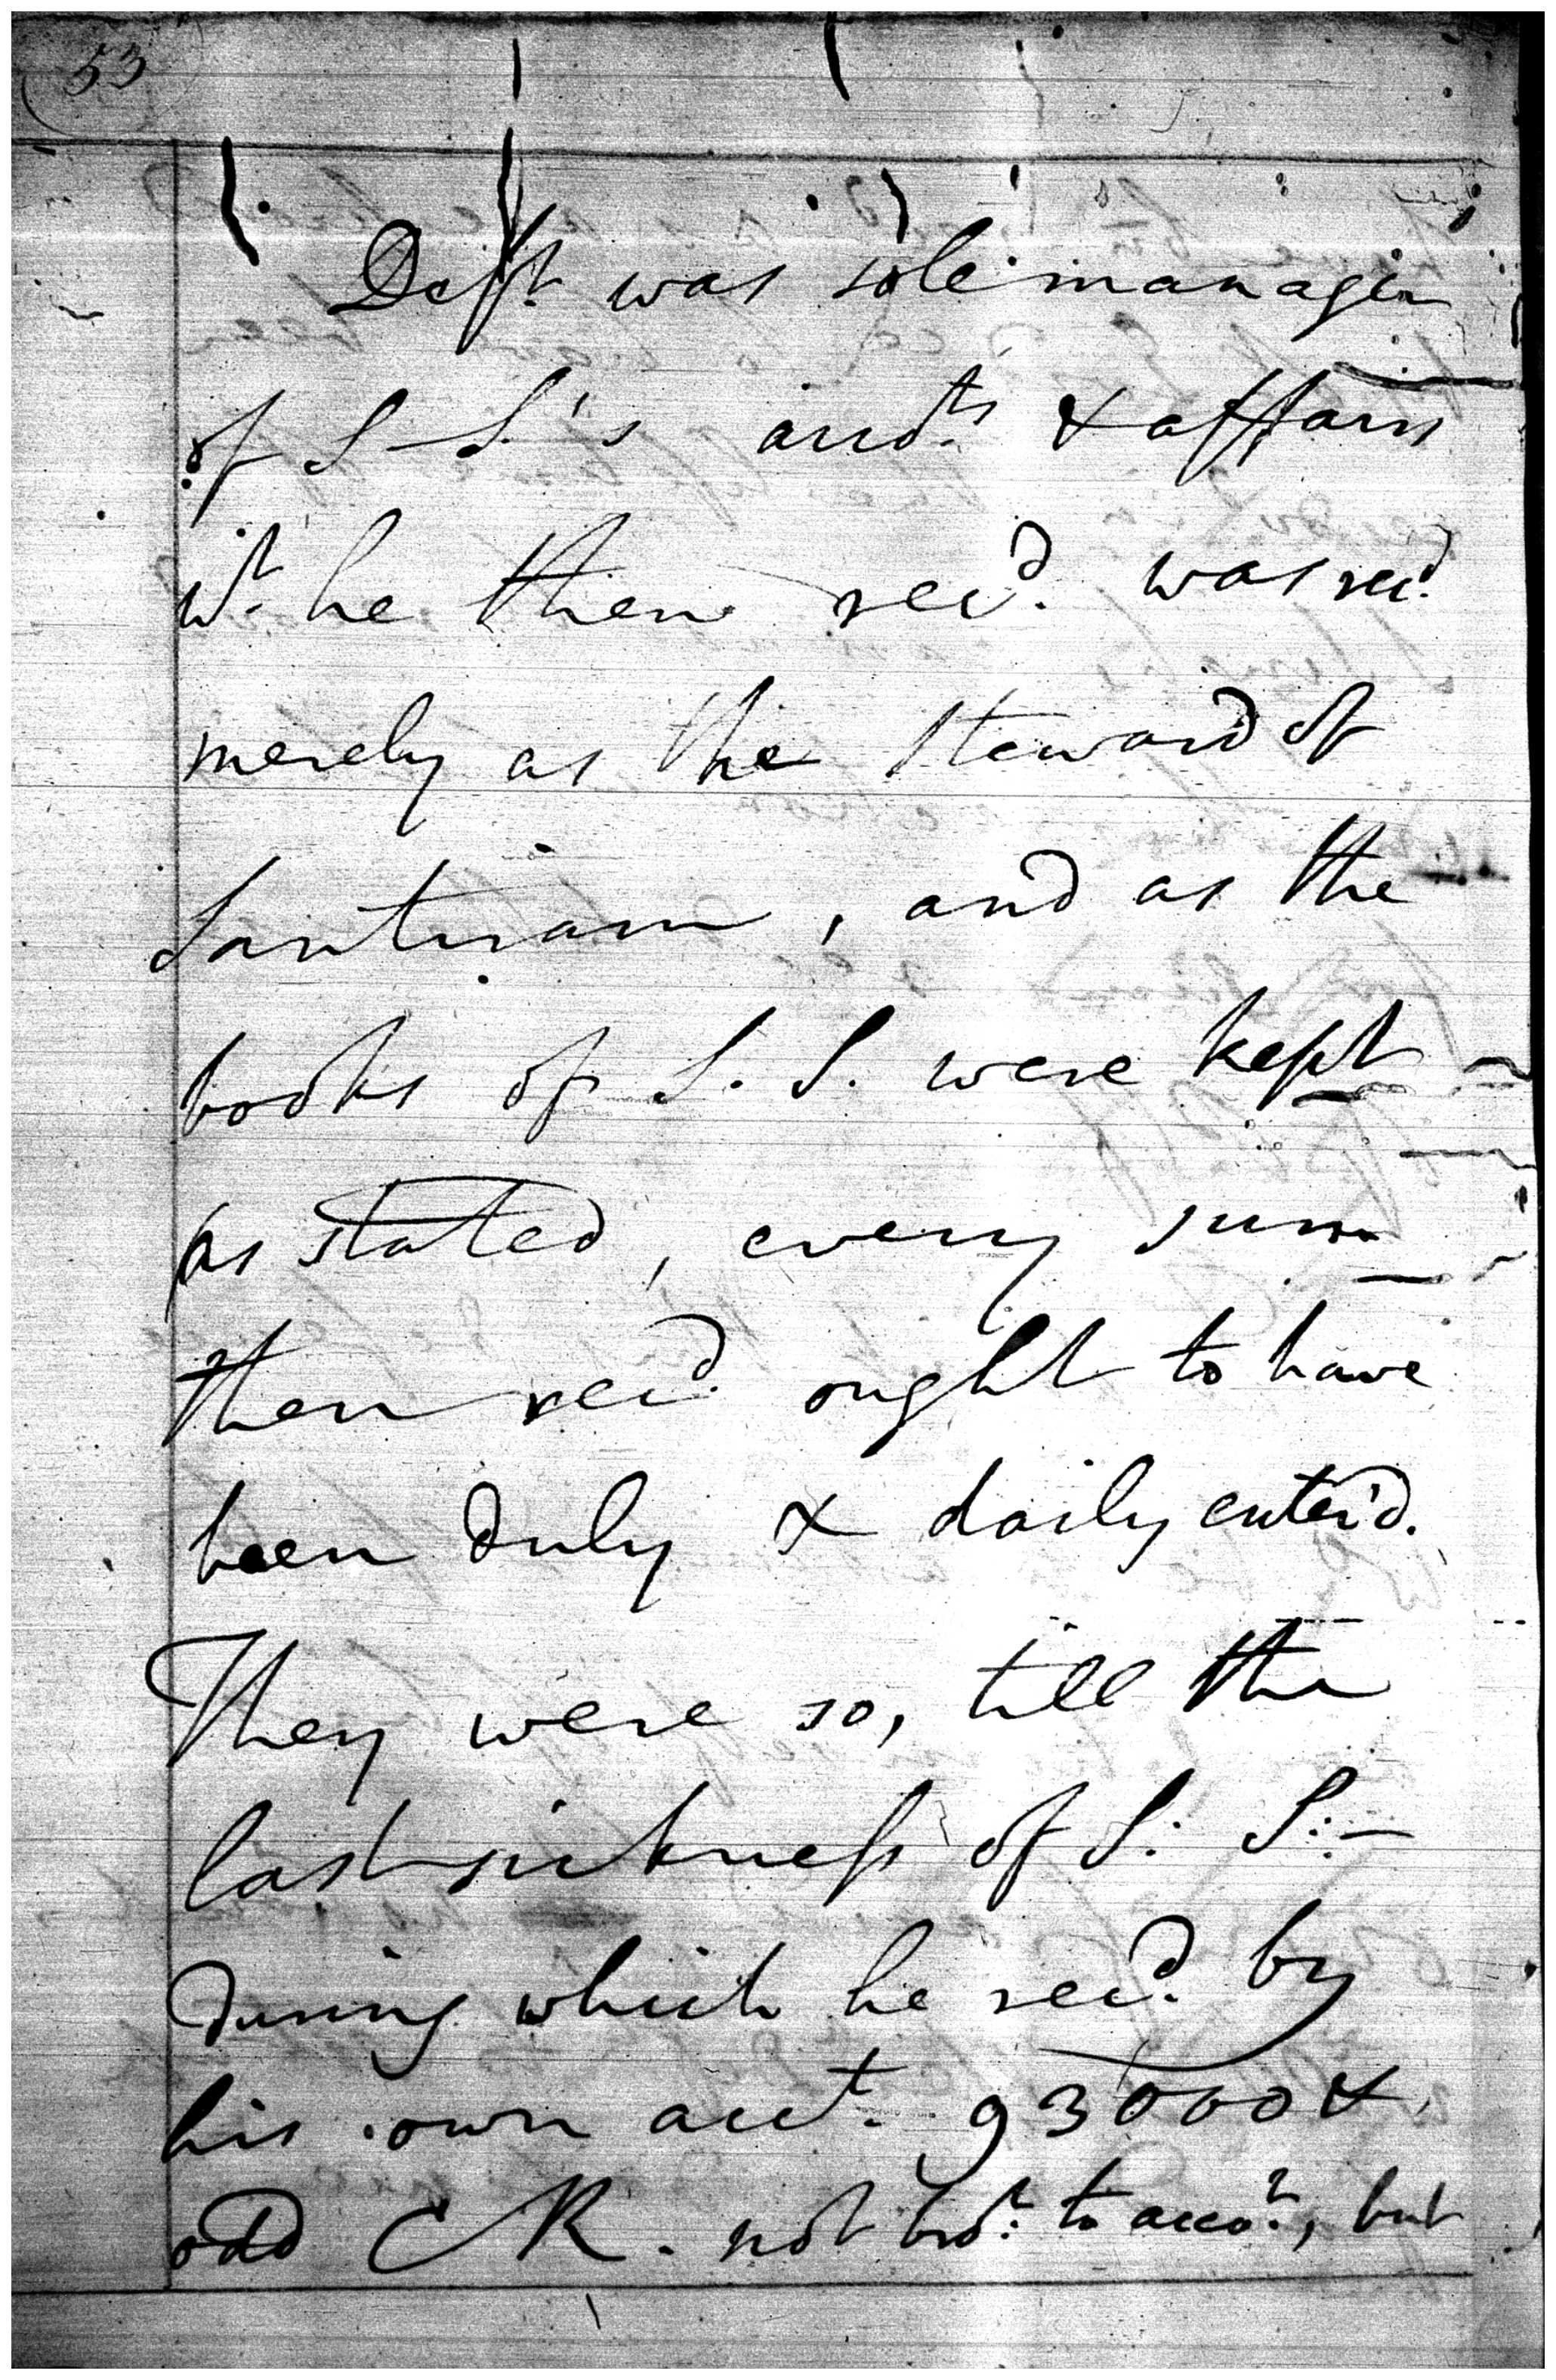 53
Deft. was sole manager
of S. S.'s accts. & affairs
wt. he then recd. was recd.
merely as the steward of
Santiram, and as the
books of S. S. were kept
as stated, every sum
then recd. ought to have
been duly & daily enter'd.
They were so, till the
last sickness of S. S. -
During which he recd. by
his own acct. 93000 &
odd CR. not brot. to accot., but